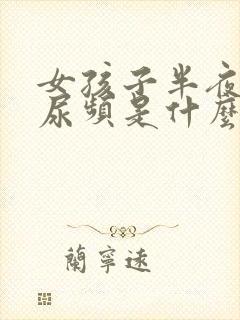 女孩子半夜
尿頻是什麼
蘭寧遠